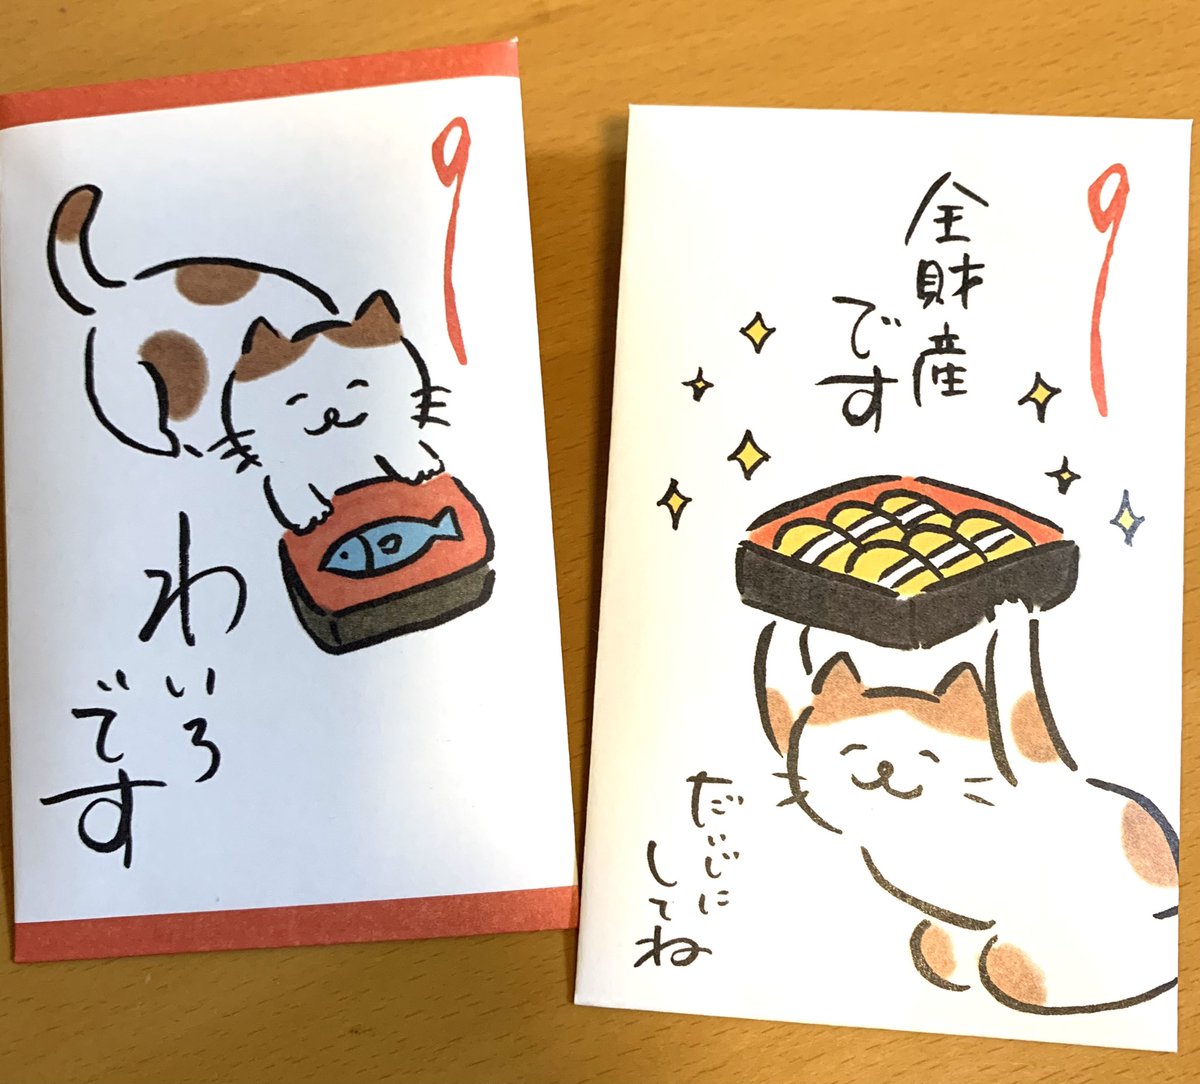 わいろ
です
全財産
です
だいじに
してね